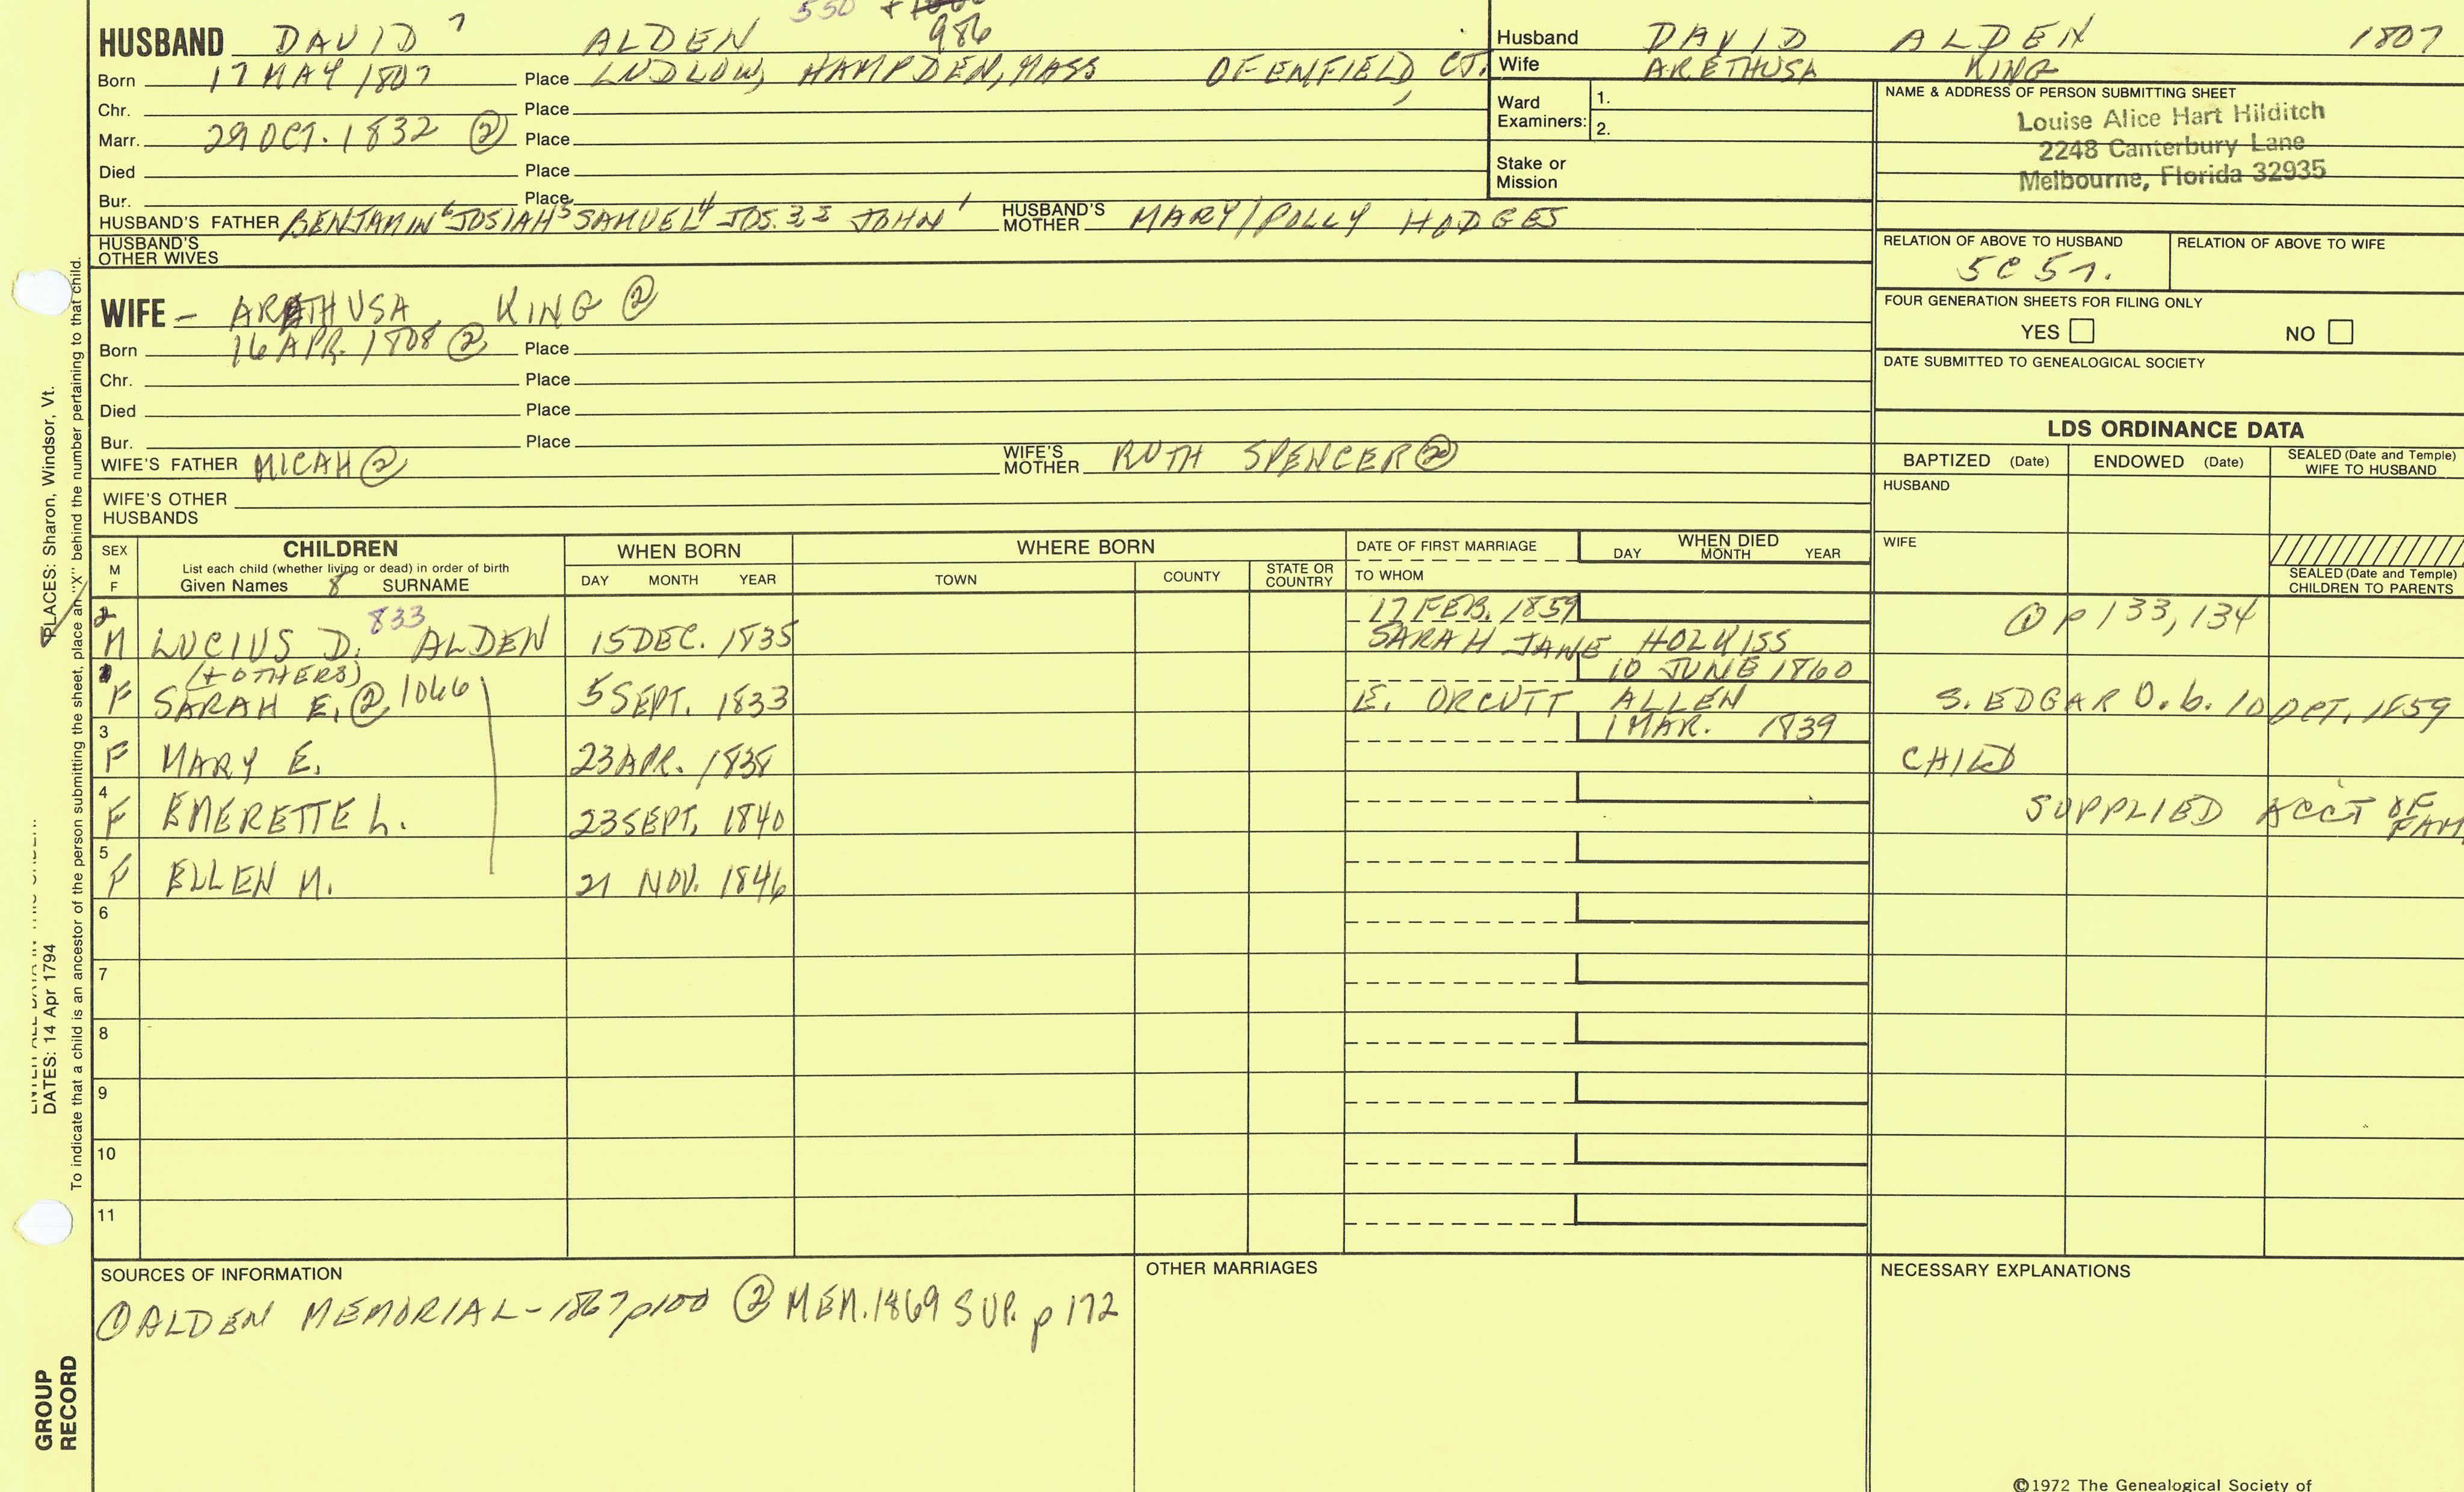 550 +
HUSBAND DAVID 7 ALDEN 986
Born 17 MAY 1807 Place LUDLOW, HAMPDEN, MASS OF ENFIELD, CT.
Chr. Place
Marr. 29 OCT. 1832 ② Place
Died Place
Bur. Place
HUSBAND'S FATHER BENJAMIN 6 JOSIAH 5 SAMUEL 4 JOS. 3 2 JOHN 1 HUSBAND'S MOTHER MARY/POLLY HODGES
HUSBAND'S OTHER WIVES
WIFE - ARETHUSA KING ②
Born 16 APR. 1808 ② Place
Chr. Place
Died Place
Bur. Place
WIFE'S FATHER MICAH ② WIFE'S MOTHER RUTH SPENCER ②
WIFE'S OTHER HUSBANDS
Husband DAVID ALDEN 1807
Wife ARETHUSA KING
Ward Examiners: 1.
2.
Stake or Mission
NAME & ADDRESS OF PERSON SUBMITTING SHEET
Louise Alice Hart Hilditch
2248 Canterbury Lane
Melbourne, Florida 32935
RELATION OF ABOVE TO HUSBAND RELATION OF ABOVE TO WIFE
5C 5r.
FOUR GENERATION SHEETS FOR FILING ONLY
YES NO
DATE SUBMITTED TO GENEALOGICAL SOCIETY
LDS ORDINANCE DATA
BAPTIZED (Date) ENDOWED (Date) SEALED (Date and Temple) WIFE TO HUSBAND
HUSBAND
WIFE
SEALED (Date and Temple) CHILDREN TO PARENTS
SEX M F
CHILDREN
List each child (whether living or dead) in order of birth
Given Names 8 SURNAME
WHEN BORN
DAY MONTH YEAR
WHERE BORN
TOWN COUNTY STATE OR COUNTRY
DATE OF FIRST MARRIAGE
TO WHOM
WHEN DIED
DAY MONTH YEAR
2 M LUCIUS D. 833 ALDEN 15 DEC. 1835 17 FEB. 1859 SARAH JANE HOLKISS ① p 133, 134
(+ OTHERS)
1 F SARAH E. ② 1066 5 SEPT. 1833 E. ORCUTT ALLEN 10 JUNE 1860 S. EDGAR O. b. 10 OCT. 1859
3 F MARY E. 23 APR. 1838 1 MAR. 1839 CHILD
4 F EMERETTE L. 23 SEPT. 1840 SUPPLIED ACCT OF FAM
5 F ELLEN M. 21 NOV. 1846
6
7
8
9
10
11
SOURCES OF INFORMATION
① ALDEN MEMORIAL - 1867 p100 ② MEM. 1869 SUP. p 172
OTHER MARRIAGES
NECESSARY EXPLANATIONS
©1972 The Genealogical Society of
PLACES: Sharon, Windsor, Vt.
DATES: 14 Apr 1794
To indicate that a child is an ancestor of the person submitting the sheet, place an "X" behind the number pertaining to that child.
GROUP
RECORD